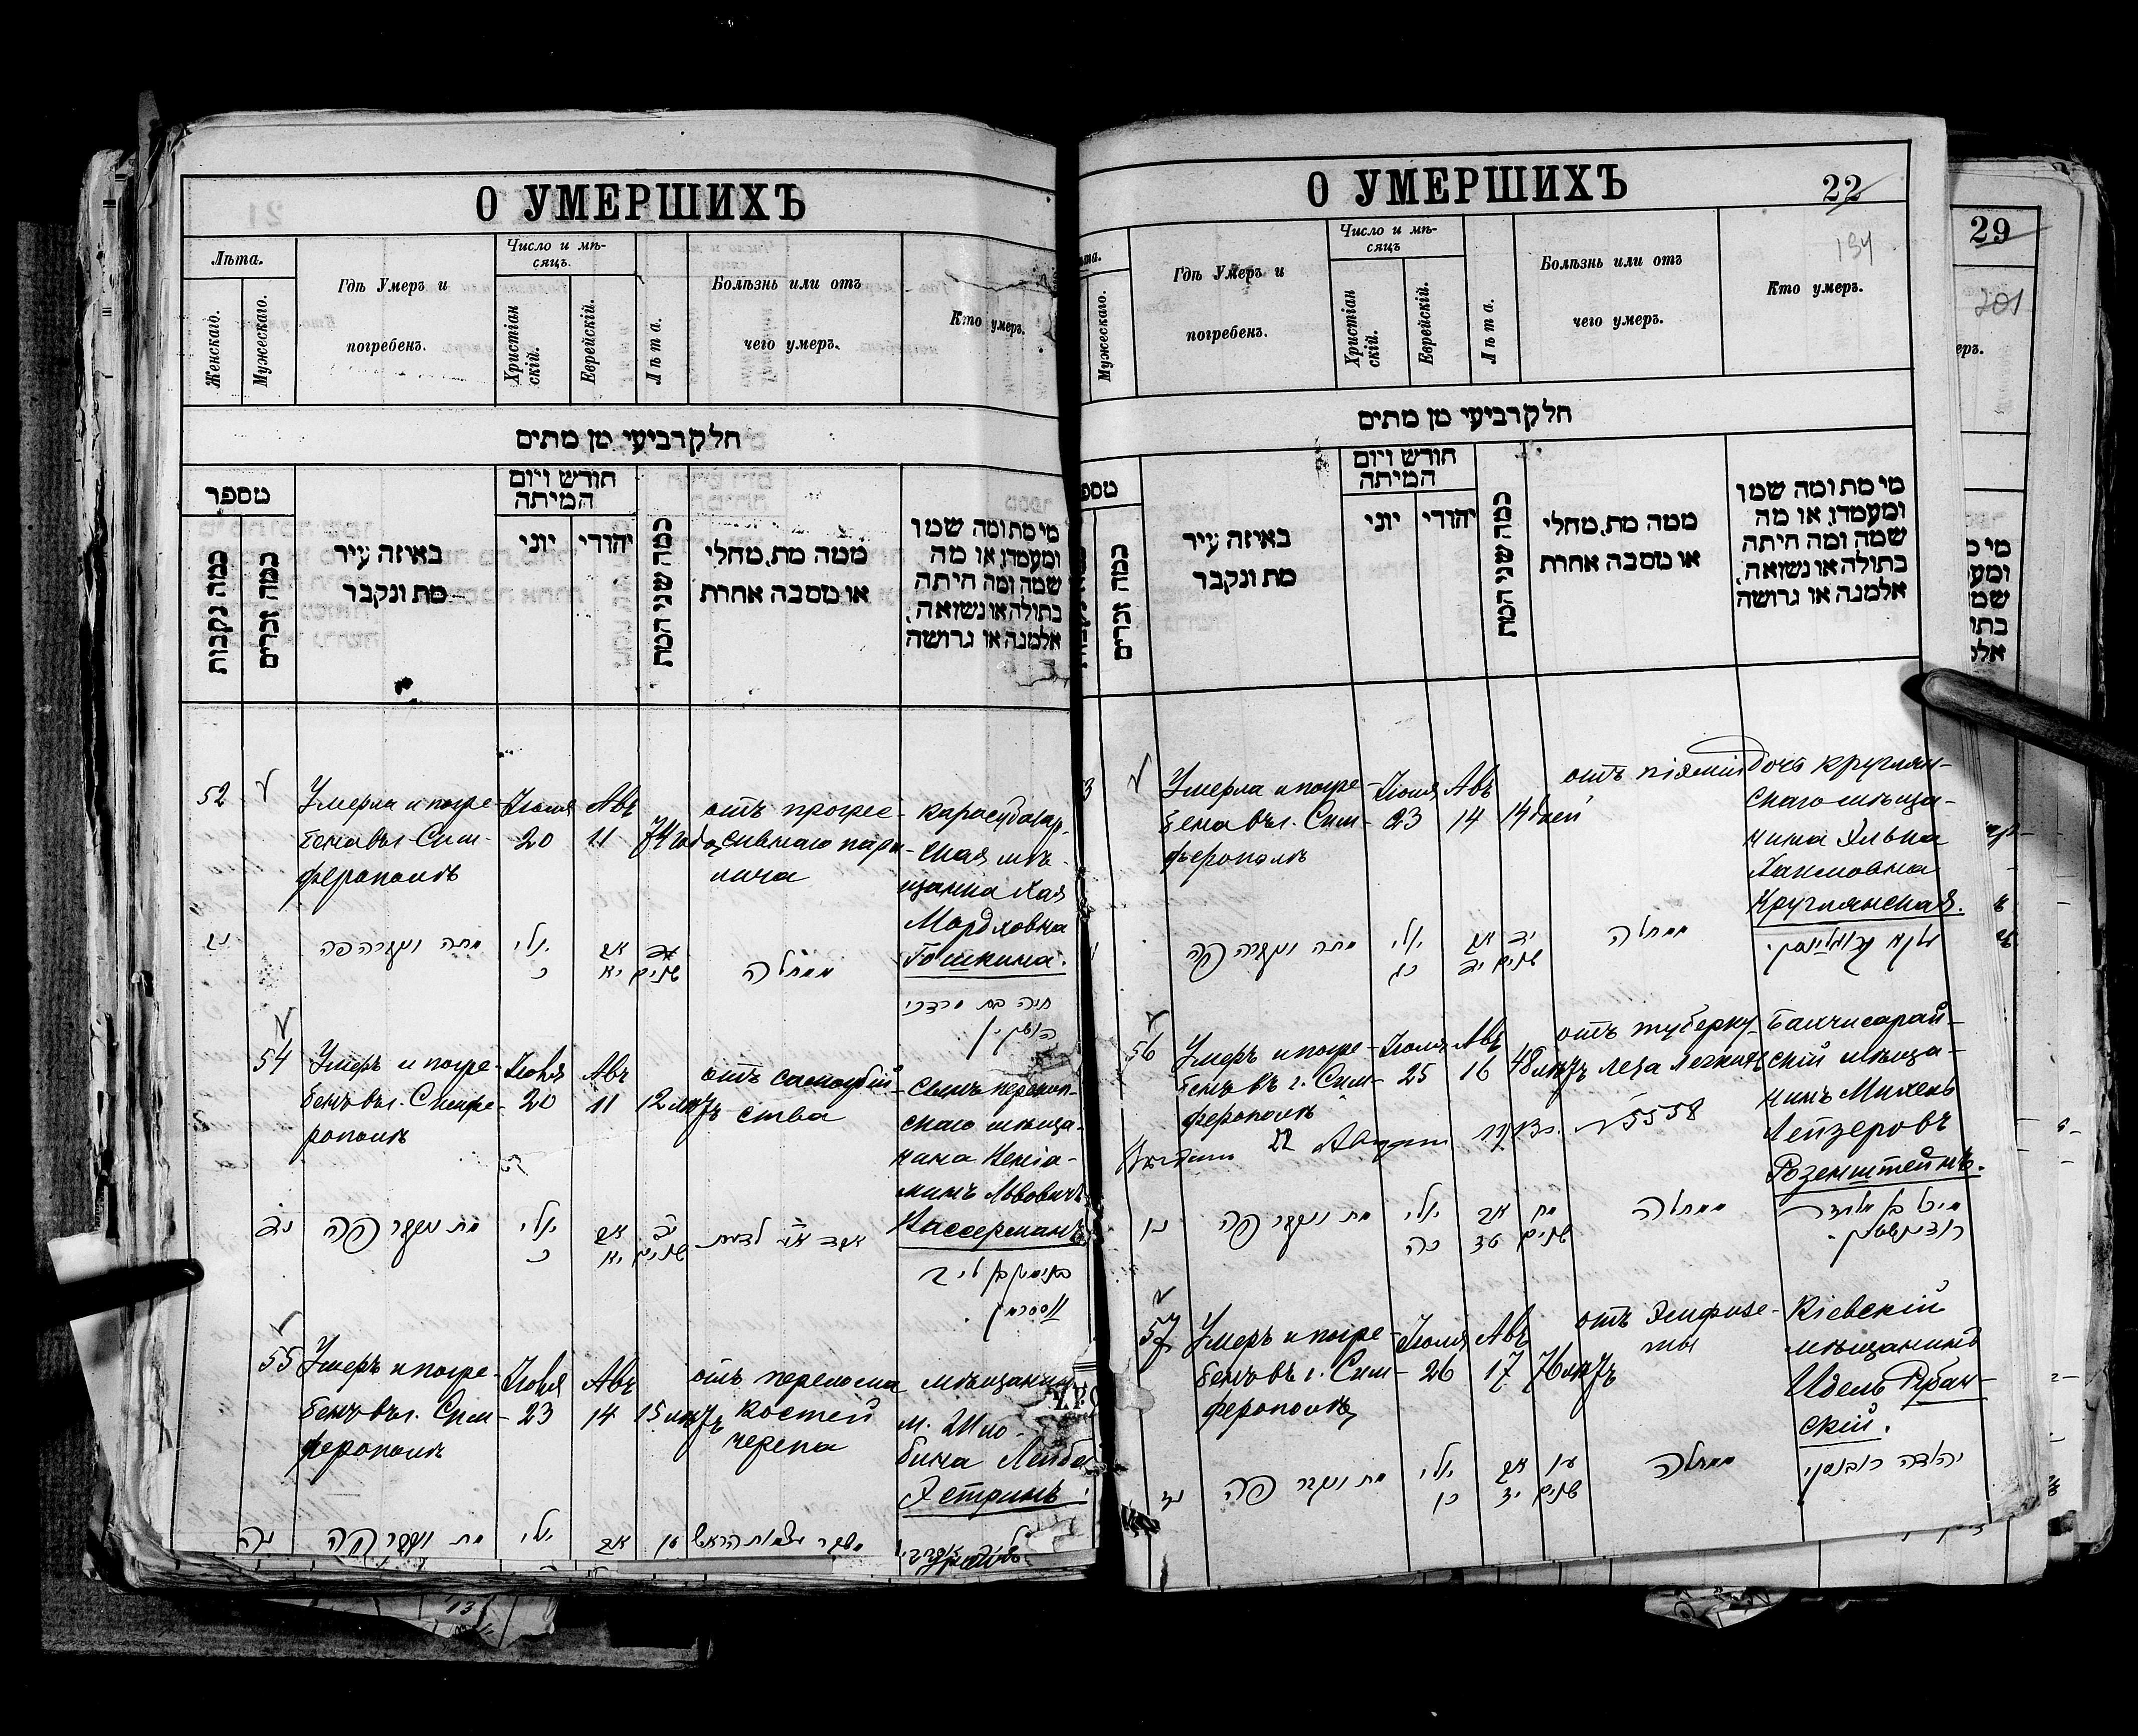 О УМЕРШИХЪ
Лѣта.
Женскаго.
Мужескаго.
Гдѣ Умеръ и
погребенъ.
Число и мѣ-
сяцъ.
Христіан
скій.
Еврейскій.
Лѣта.
Болѣзнь или отъ
чего умеръ.
Кто умеръ.
חלק רביעי מן מתים
מספר
כמה נקבות
כמה זכרים
באיזה עיר
מת ונקבר
חודש ויום
המיתה
יוני
יהודי
כמה שני המת
ממה מת, מחלי
או מסבה אחרת
מי מת ומה שמו
ומעמדו, או מה
שמה ומה היתה
בתולה או נשואה,
אלמנה או גרושה
52
Умерла и погре-
бена въ г. Сим-
ферополѣ
Іюля
20
Авъ
11
74 года
отъ прогрес-
сивнаго пара-
лича
Карасубазар-
ская мѣ-
щанка Хая
Мордховна
Гошкина.
נב
מתה ונקברה פה
יולי
כ
אב
יא
שנים
ממחלה
חיה בת מרדכי
54
Умеръ и погре-
бенъ въ г. Симфе-
рополѣ
Іюля
20
Авъ
11
12 лѣтъ
отъ самоубій-
ства
Сынъ перекоп-
скаго мѣща-
нина Веніа-
минъ Львовичъ
Вассерманъ
נד
מת ונקבר פה
יולי
כ
אב
יא
יב
שנים
אבד את לדעת
בנימין בן ליב
וואסערמאן.
55
Умеръ и погре-
бенъ въ г. Сим-
ферополѣ
Іюля
23
Авъ
14
15 лѣтъ
отъ перелома
костей
черепа
мѣщанин
м. Шко-
бина Лейба
Эстринъ.
נה
מת ונקבר פה
יולי
אב
טו
משבר עצמות הראש
О УМЕРШИХЪ
22
194
Мужескаго.
Гдѣ Умеръ и
погребенъ.
Число и мѣ-
сяцъ
Христіан
скій.
Еврейскій.
Лѣта.
Болѣзнь или отъ
чего умеръ.
Кто умеръ.
חלק רביעי מן מתים
כמה זכרים
באיזה עיר
מת ונקבר
חודש ויום
המיתה
יוני
יהודי
כמה שני המת
ממה מת, מחלי
או מסבה אחרת
מי מת ומה שמו
ומעמדו, או מה
שמה ומה היתה
בתולה או נשואה,
אלמנה או גרושה
3
Умерла и погре-
бена въ г. Сим-
ферополѣ
Іюля
23
Авъ
14
14 дней
отъ піэміи
Дочь круглян-
скаго мѣща-
нина Эльва
Хаимовна
Круглянская.
מתה ונקברה פה
יולי
כג
אב
יד
ממחלה
56
Умеръ и погре-
бенъ въ г. Сим-
ферополѣ
Іюля
25
Авъ
16
48 лѣтъ
отъ туберку-
леза легкихъ
Бахчисарай-
скій мѣща-
нинъ Михель
Лейзеровъ
Розенштейнъ.
22
№ 5558
נו
מת ונקבר פה
יולי
כה
אב
טז
מח
שנים
ממחלה
מיכל בן אליעזר
ראזינשטיין.
57
Умеръ и погре-
бенъ въ г. Сим-
ферополѣ
Іюля
26
Авъ
17
76 лѣтъ
отъ Эмфизе-
мы
Кіевскій
мѣщанинъ
Идель Рубан-
скій.
נז
מת ונקבר פה
יולי
כו
אב
יז
עו
שנים
ממחלה
יהודה רובנסקי
29
201